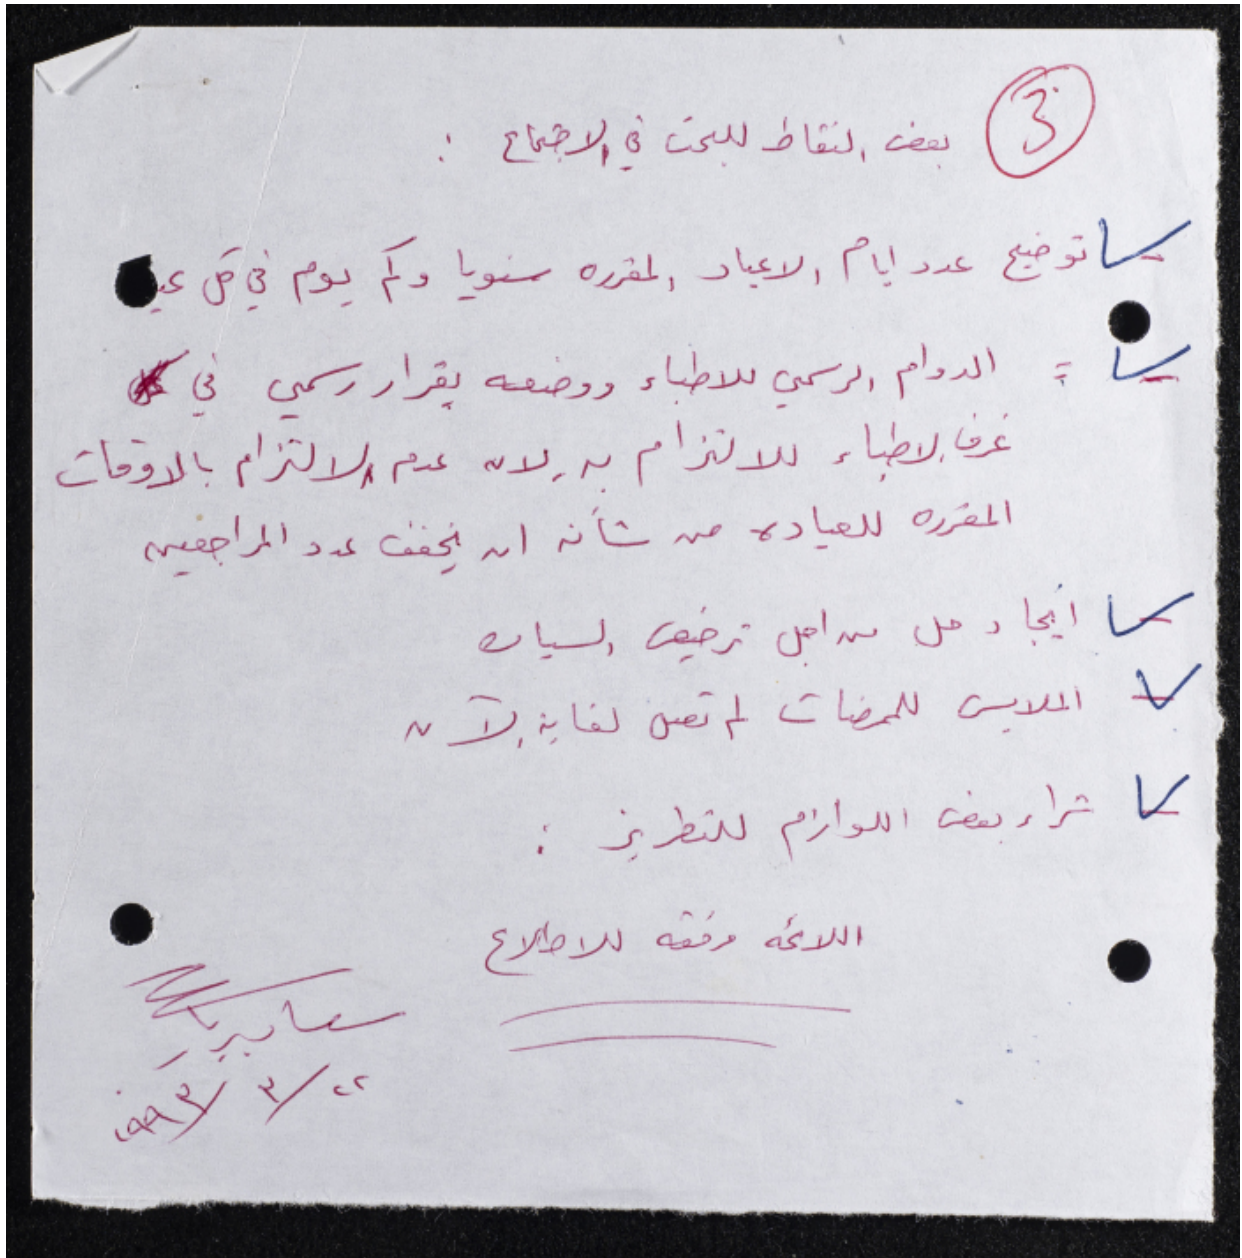 3
بعض النقاط للبحث في الاجتماع :
توضيح عدد ايام الاعياد المقرره سنويا وكم يوم في كل عيد
= الدوام الرسمي للاطباء ووضعه بقرار رسمي في
غرف الاطباء للالتزام به لان عدم الالتزام بالاوقات
المقرره للعياده من شأنه ان يخفف عدد المراجعين
- ايجاد حل من اجل ترخيص السياره
- الملابس للممرضات لم تصل لغاية الآن
- شراء بعض اللوازم للتطريز :
اللائحه مرفقه للاطلاع
٢٢/٣/١٩٩٣